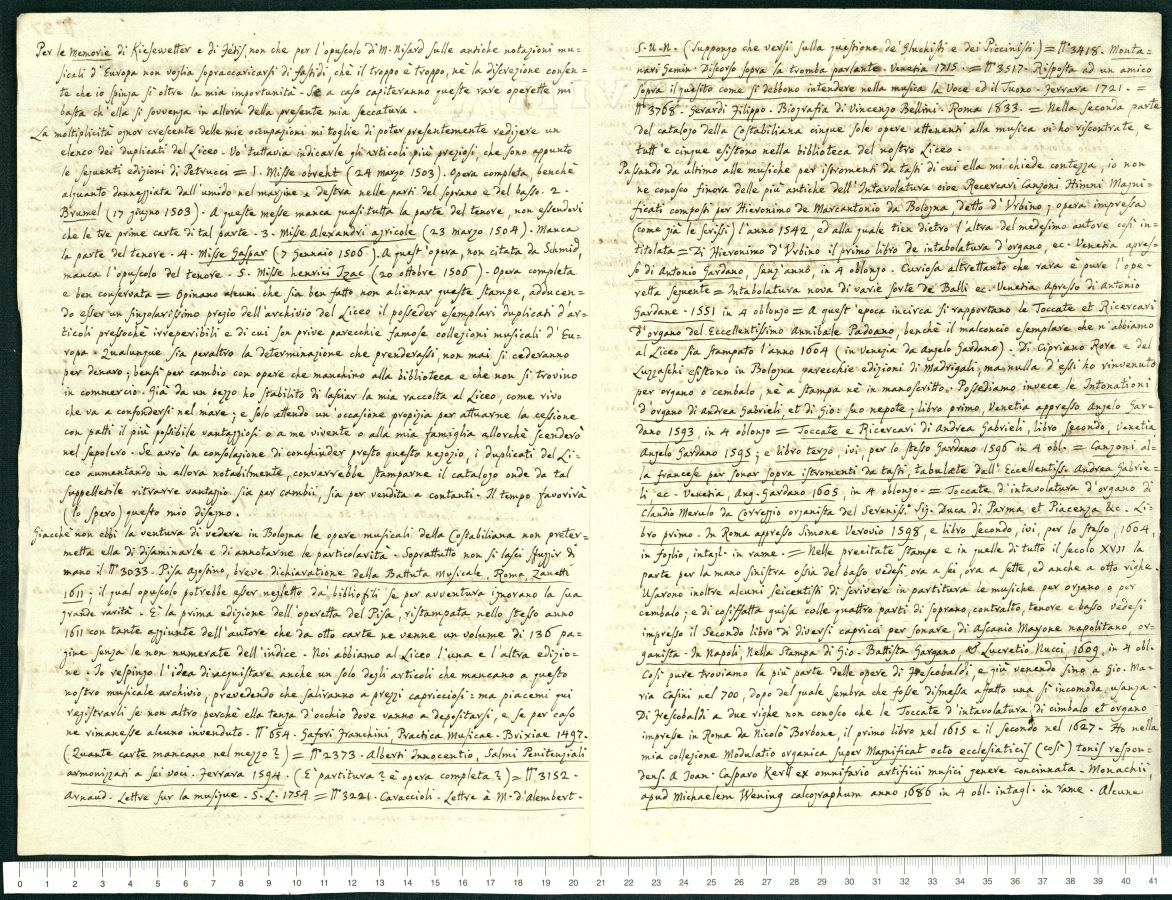 Per le Memorie di Kiesewetter e di Fétis, non che per l'opuscolo di M. Nisard sulle antiche notazioni mu-
sicali d'Europa non voglia sopraccaricarsi di fastidi, chè il troppo è troppo, nè la discrezione consen-
te che io spinga sì oltre la mia importunità. Se a caso capiteranno queste rare operette mi
basta ch'ella si sovvenga in allora della presente mia seccatura.
La moltiplicità ognor crescente delle mie occupazioni mi toglie di poter presentemente redigere un
elenco dei duplicati del Liceo. Vo' tuttavia indicarle gli articoli più preziosi, che sono appunto
le seguenti edizioni di Petrucci = 1. Misse obreht (24 marzo 1503). Opera completa, benchè
alquanto danneggiata dall'umido nel margine a destra nelle parti del soprano e del basso. 2.
Brumel (17 giugno 1503). A queste messe manca quasi tutta la parte del tenore, non essendovi
che le tre prime carte di tal parte. 3. Misse Alexandri agricole (23 marzo 1504). Manca
la parte del tenore. 4. Misse Gaspar (7 Gennaio 1506). A quest'opera, non citata da Schmid,
manca l'opuscolo del tenore. 5. Misse henrici Izac (20 ottobre 1506). Opera completa
e ben conservata = Opinano alcuni che sia ben fatto non alienar queste stampe, adducen-
do esser un singolarissimo pregio dell'archivio del Liceo il posseder esemplari duplicati d'ar-
ticoli pressochè irreperibili e di cui son prive parecchie famose collezioni musicali d'Eu-
ropa. Qualunque sia peraltro la determinazione che prenderassi, non mai si cederanno
per denaro; bensì per cambio con opere che manchino alla biblioteca e che non si trovino
in commercio. Già da un pezzo ho stabilito di lasciar la mia raccolta al Liceo, come rivo
che va a confondersi nel mare; e solo attendo un'occasione propizia per attuarne la cessione
con patti il più possibile vantaggiosi o a me vivente o alla mia famiglia allorchè scenderò
nel sepolcro. Se avrò la consolazione di conchiuder presto questo negozio, i duplicati del Li-
ceo aumentando in allora notabilmente, converrebbe stamparne il catalogo onde da tal
suppellettile ritrarre vantaggio, sia per cambii, sia per vendita a contanti. Il tempo favorirà
(lo spero) questo mio disegno.
Giacchè non ebbi la ventura di vedere in Bologna le opere musicali della Costabiliana non preter-
metta ella di disaminarle e di annotarne le particolarità. Soprattutto non si lasci sfuggir di
mano il N° 3033. Pisa Agostino, breve dichiaratione della Battuta Musicale, Roma, Zanetti
1611; il qual opuscolo potrebbe esser negletto da' bibliofili se per avventura ignorano la sua
grande rarità. È la prima edizione dell'operetta del Pisa, ristampata nello stesso anno
1611 con tante aggiunte dell'autore che da otto carte ne venne un volume di 136 pa-
gine senza le non numerate dell'indice. Noi abbiamo al Liceo l'una e l'altra edizio-
ne. Io respingo l'idea di acquistare anche un solo degli articoli che mancano a questo
nostro musicale archivio, prevedendo che saliranno a prezzi capricciosi: ma piacemi qui
registrarli se non altro perchè ella tenga d'occhio dove vanno a depositarsi, e se per caso
ne rimanesse alcuno invenduto. N° 654. Gafori Franchini Practica Musicae. Brixiae 1497.
(Quante carte mancano nel mezzo?) = N° 2373. Alberti Innocentio, Salmi Penitenziali
armonizzati a sei voci. Ferrara 1594. (È partitura? è opera completa?) = N° 3152.
Arnaud. Lettre sur la musique. S. L. 1754 = N° 3221. Caraccioli. Lettre à M. d'Alembert.
S. U. N. (Suppongo che versi sulla questione de' Gluckisti e dei Piccinisti) = N° 3418. Monta-
nari Gemin. Discorso sopra la tromba parlante. Venezia 1715. = N° 3517. Risposta ad un amico
sopra il quesito come si debbono intendere nella musica la Voce ed il Tuono. Ferrara 1721. =
N° 3768. Gerardi Filippo. Biografia di Vincenzo Bellini. Roma 1833. = Nella seconda parte
del catalogo della Costabiliana cinque sole opere attenenti alla musica vi ho riscontrate, e
tutt'e cinque esistono nella biblioteca del nostro Liceo.
Passando da ultimo alle musiche per istromenti da tasti di cui ella mi chiede contezza, io non
ne conosco finora delle più antiche dell'Intavolatura cioe Recercari Canzoni Himni Magni-
ficati composti per Hieronimo de Marcantonio da Bologna detto d'Urbino; opera impressa
(come già le scrissi) l'anno 1542 ed alla quale tien dietro l'altra del medesimo autore così in-
titolata = Di Hieronimo d'Urbino il primo libro de intabolatura d'organo, ec. Venetia apres-
so di Antonio Gardano, senz'anno, in 4 oblongo. Curiosa altrettanto che rara è pure l'ope-
retta seguente = Intabolatura nova di varie sorte de Balli ec. Venetia Apresso di Antonio
Gardane. 1551 in 4 oblongo = A quest'epoca incirca si rapportano le Toccate et Ricercari
d'organo del Eccellentissimo Annibale Padoano, benchè il malconcio esemplare che n'abbiamo
al Liceo sia stampato l'anno 1604 (in Venezia da Angelo Gardano). Di Cipriano Rore e del
Luzzaschi esistono in Bologna parecchie edizioni di Madrigali, ma nulla d'essi ho rinvenuto
per organo o cembalo, nè a stampa nè in manoscritto. Possediamo invece le Intonationi
d'organo di Andrea Gabrieli et di Gio: suo nepote; libro primo, Venetia appresso Angelo Gar-
dano 1593, in 4 oblongo = Toccate e Ricercari di Andrea Gabrieli, libro secondo, Venetia
Angelo Gardano 1595; e libro terzo, ivi, per lo stesso Gardano 1596 in 4 obl. = Canzoni al-
la francese per sonar sopra istromenti da tasti, tabulate dall'Eccellentiss. Andrea Gabrie-
li ec. Venetia, Ang. Gardano 1605, in 4 oblongo. = Toccate d'intavolatura d'organo di
Claudio Merulo da Correggio organista del Sereniss. Sig. Duca di Parma et Piacenza &c. Li-
bro primo. In Roma appresso Simone Verovio 1598, e libro secondo, ivi, per lo stesso, 1604,
in foglio, intagl. in rame. = Nelle precitate stampe e in quelle di tutto il secolo XVII la
parte per la mano sinistra ossia del basso vedesi, ora a sei, ora a sette, ed anche a otto righe.
Usarono inoltre alcuni seicentisti di scrivere in partitura le musiche per organo o per
cembalo; e di cosiffatta guisa colle quattro parti di soprano, contralto, tenore e basso vedesi
impresso il Secondo libro di diversi capricci per sonare, di Ascanio Mayone napolitano, or-
ganista. In Napoli, Nella Stampa di Gio. Battista Gargano, & Lucretio Nucci, 1609, in 4 obl.
Così pure troviamo la più parte delle opere di Frescobaldi, e giù venendo sino a Gio. Ma-
ria Casini nel 700, dopo del quale sembra che fosse dismessa affatto una sì incomoda usanza.
Di Frescobaldi a due righe non conosco che le Toccate d'intavolatura di cimbalo et organo
imprese in Roma da Nicolò Borbone, il primo libro nel 1615 e il Secondo nel 1627. Ho nella
mia collezione Modulatio organica super Magnificat octo ecclesiaticis (così) tonis respon-
dens. A Joan. Casparo Kerll ex omnifario artificii musici genere concinnata. Monachii,
apud Michaelem Wening calcographum anno 1686 in 4 obl. intagl. in rame. Alcune
0 1 2 3 4 5 6 7 8 9 10 11 12 13 14 15 16 17 18 19 20 21 22 23 24 25 26 27 28 29 30 31 32 33 34 35 36 37 38 39 40 41